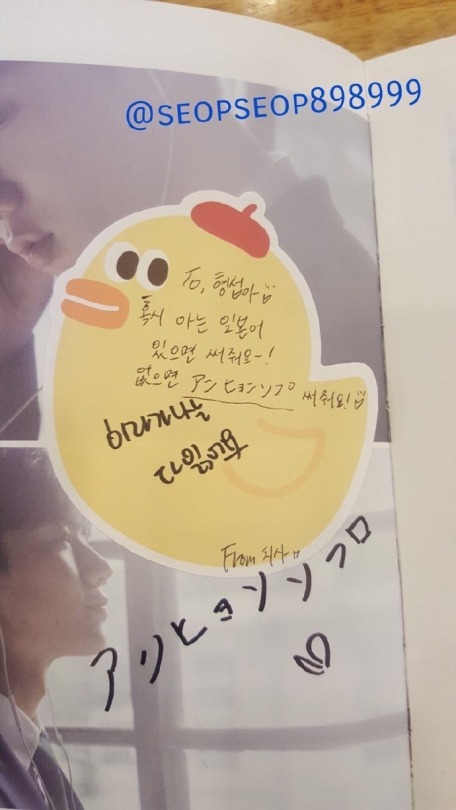 @SEOPSEOP898999
To, 형섭아
혹시 아는 일본어
있으면 써줘요~!
없으면 アンヒョンソプ 써줘요!
From
アンヒョンソプ